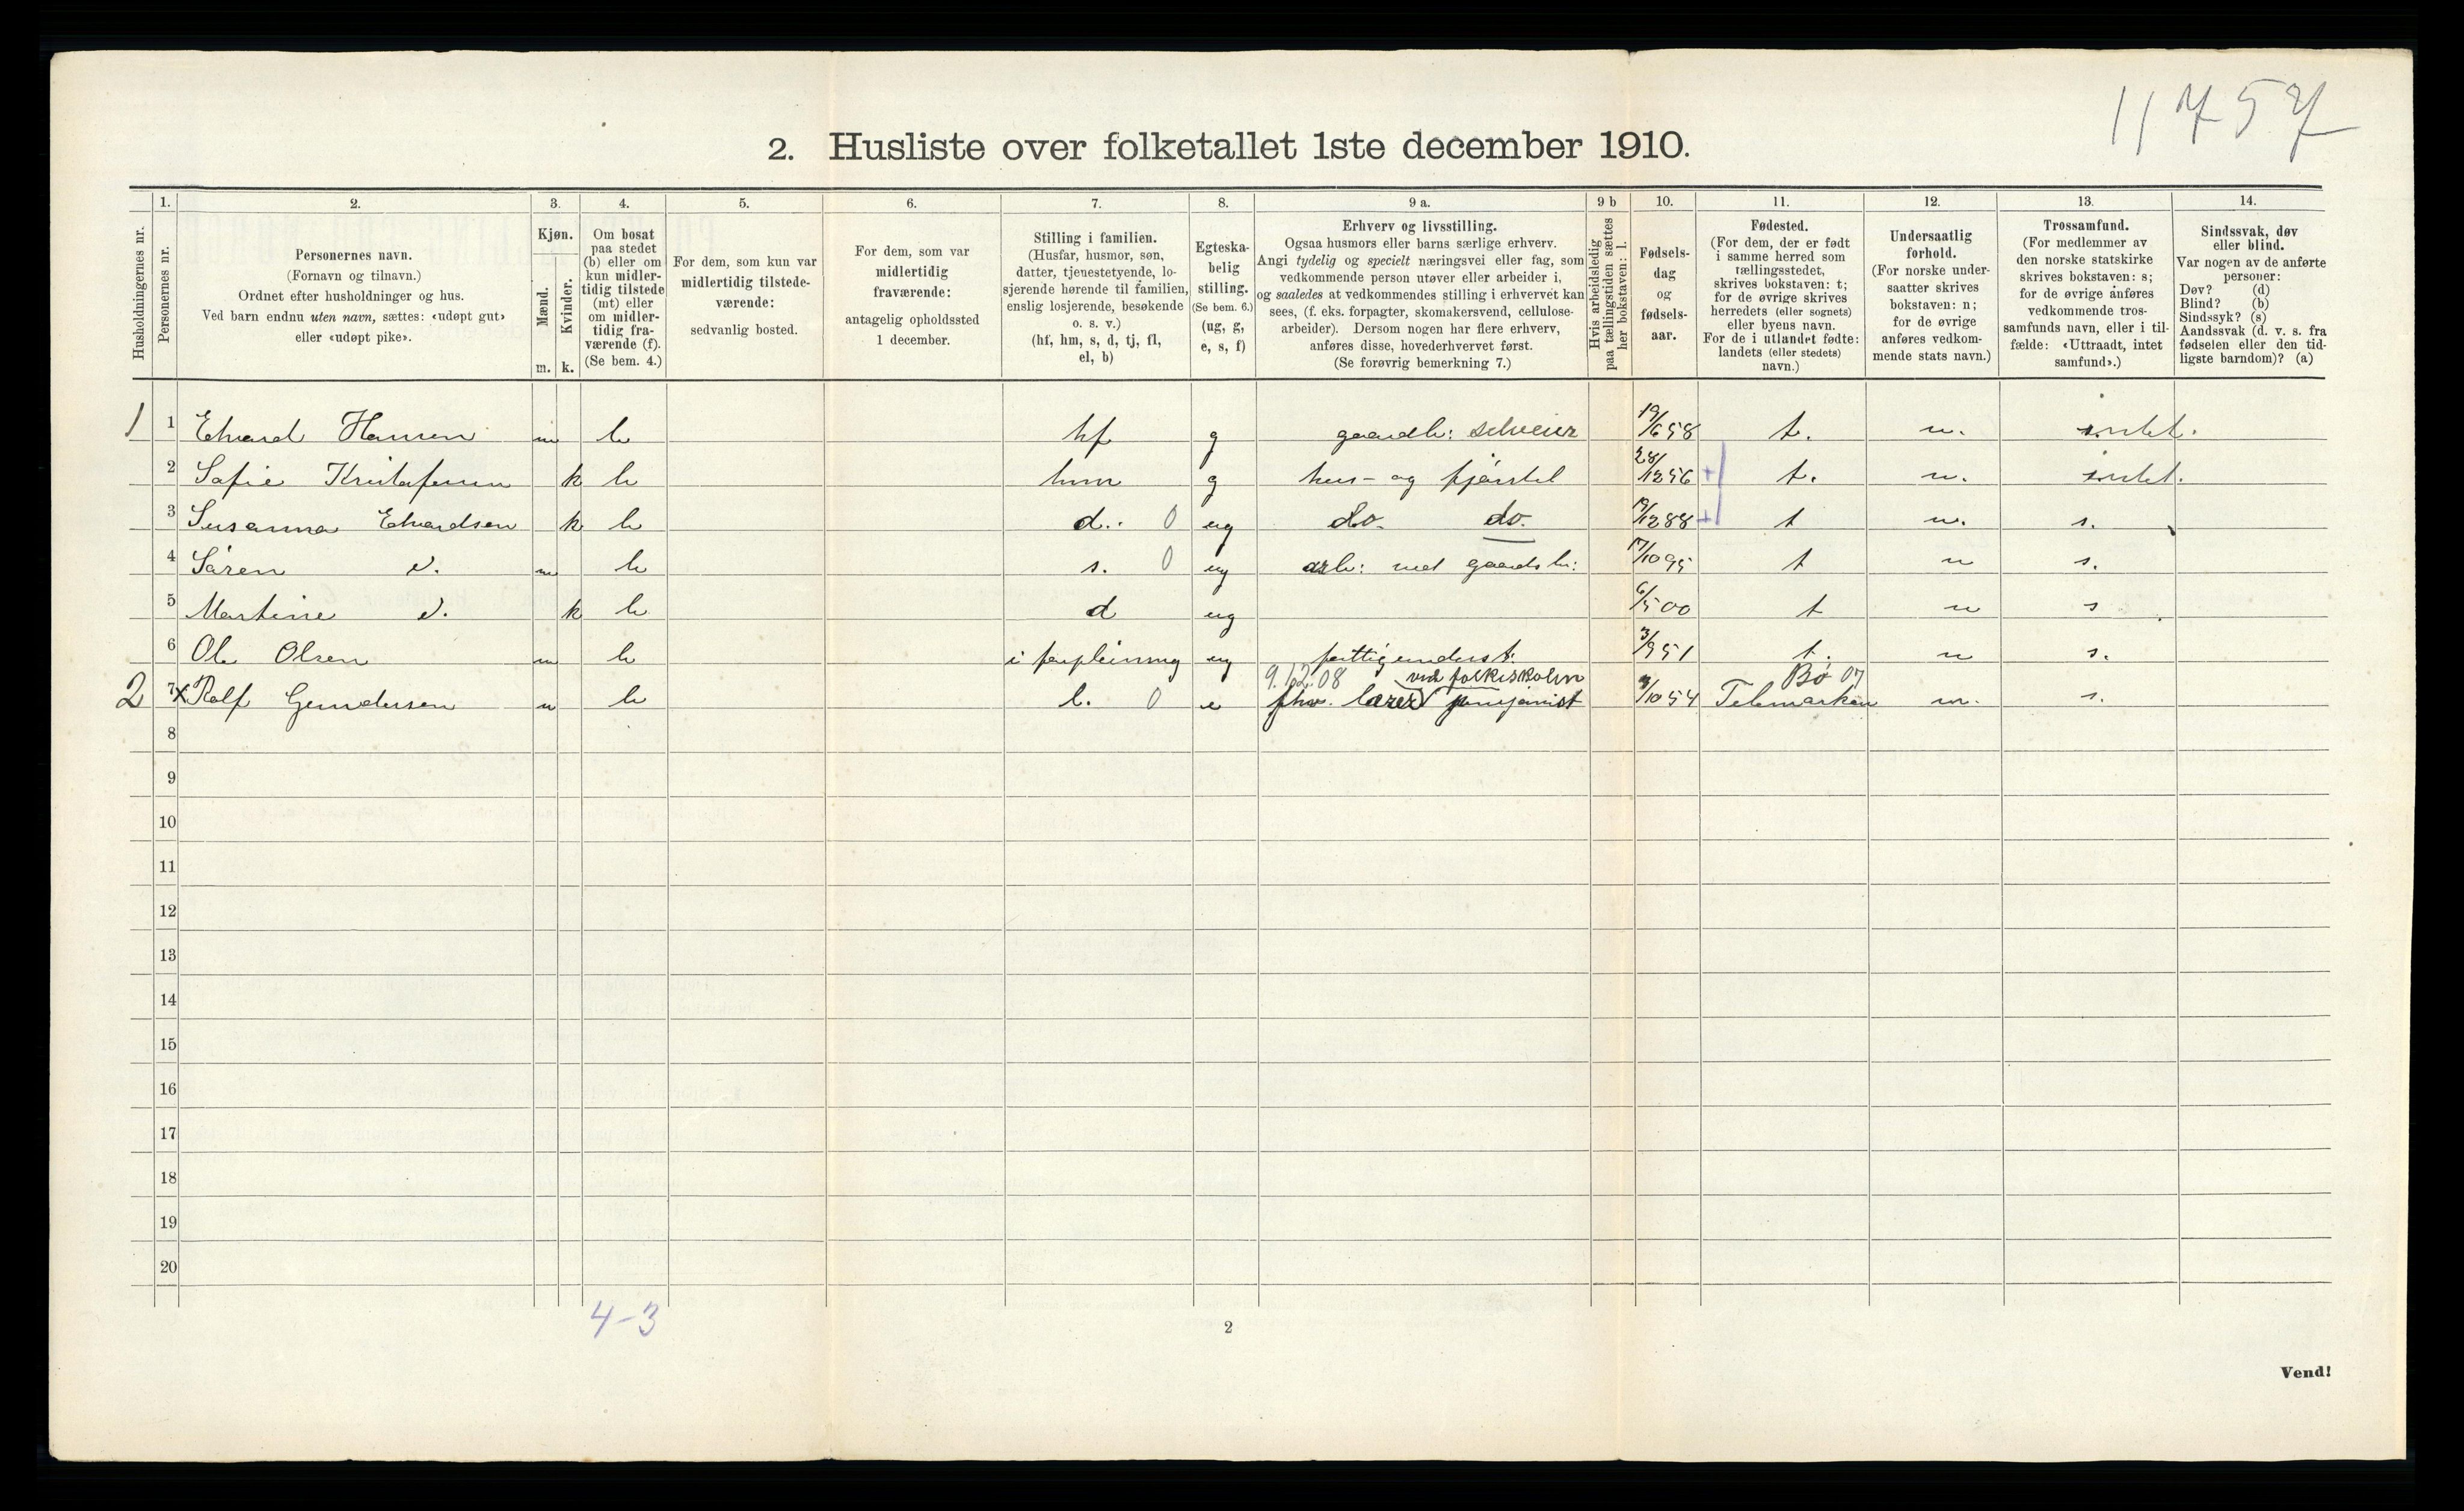 11757
2. Husliste over folketallet 1ste december 1910.
Husholdningernes nr.
1.
Personernes nr.
2.
Personernes navn.
(Fornavn og tilnavn.)
Ordnet efter husholdninger og hus.
Ved barn endnu uten navn, sættes: «udøpt gut»
eller «udøpt pike».
3.
Kjøn.
Mænd.
Kvinder.
m. k.
4.
Om bosat
paa stedet
(b) eller om
kun midler-
tidig tilstede
(mt) eller
om midler-
tidig fra-
værende (f).
(Se bem. 4.)
5.
For dem, som kun var
midlertidig tilstede-
værende:
sedvanlig bosted.
6.
For dem, som var
midlertidig
fraværende:
antagelig opholdssted
1 december.
7.
Stilling i familien.
(Husfar, husmor, søn,
datter, tjenestetyende, lo-
sjerende hørende til familien,
enslig losjerende, besøkende
o. s. v.)
(hf, hm, s, d, tj, fl,
el, b)
8.
Egteska-
belig
stilling.
(Se bem. 6.)
(ug, g,
e, s, f)
9 a.
Erhverv og livsstilling.
Ogsaa husmors eller barns særlige erhverv.
Angi tydelig og specielt næringsvei eller fag, som
vedkommende person utøver eller arbeider i,
og saaledes at vedkommendes stilling i erhvervet kan
sees, (f. eks. forpagter, skomakersvend, cellulose-
arbeider). Dersom nogen har flere erhverv,
anføres disse, hovederhvervet først.
(Se forøvrig bemerkning 7.)
9 b
Hvis arbeidsledig
paa tællingstiden sættes
her bokstaven: l.
10.
Fødsels-
dag
og
fødsels-
aar.
11.
Fødested.
(For dem, der er født
i samme herred som
tællingsstedet,
skrives bokstaven: t;
for de øvrige skrives
herredets (eller sognets)
eller byens navn.
For de i utlandet fødte:
landets (eller stedets)
navn.)
12.
Undersaatlig
forhold.
(For norske under-
saatter skrives
bokstaven: n;
for de øvrige
anføres vedkom-
mende stats navn.)
13.
Trossamfund.
(For medlemmer av
den norske statskirke
skrives bokstaven: s;
for de øvrige anføres
vedkommende tros-
samfunds navn, eller i til-
fælde: «Uttraadt, intet
samfund».)
14.
Sindssvak, døv
eller blind.
Var nogen av de anførte
personer:
Døv? (d)
Blind? (b)
Sindssyk? (s)
Aandssvak (d. v. s. fra
fødselen eller den tid-
ligste barndom)? (a)
1 1 Edvard Hansen m b hf g gaardb: selveier 19/6 58 t. n. intet.
2 Safie Kristafersen k b hm g hus- og fjørstel 28/12 56 t. n. intet.
3 Susanna Edvardsen k b d. 0 ug do. do. 19/12 88 t n. s.
4 Søren d. m b s. 0 ug arb: ved gaardsb: 17/10 95 t n s.
5 Martine d. k b d ug 6/5 00 t n s
6 Ole Olsen m b i forpleining ug fattigunderst. 3/9 51 t. n s.
9.12.08 ved folkeskolen Bø 07
2 7 x Rolf Gundersen m b l. 0 e fhv. lærer pensjonist 3/10 54 Telemarken n. s.
8
9
10
11
12
13
14
15
16
17
18
19
20
4-3
2
Vend!